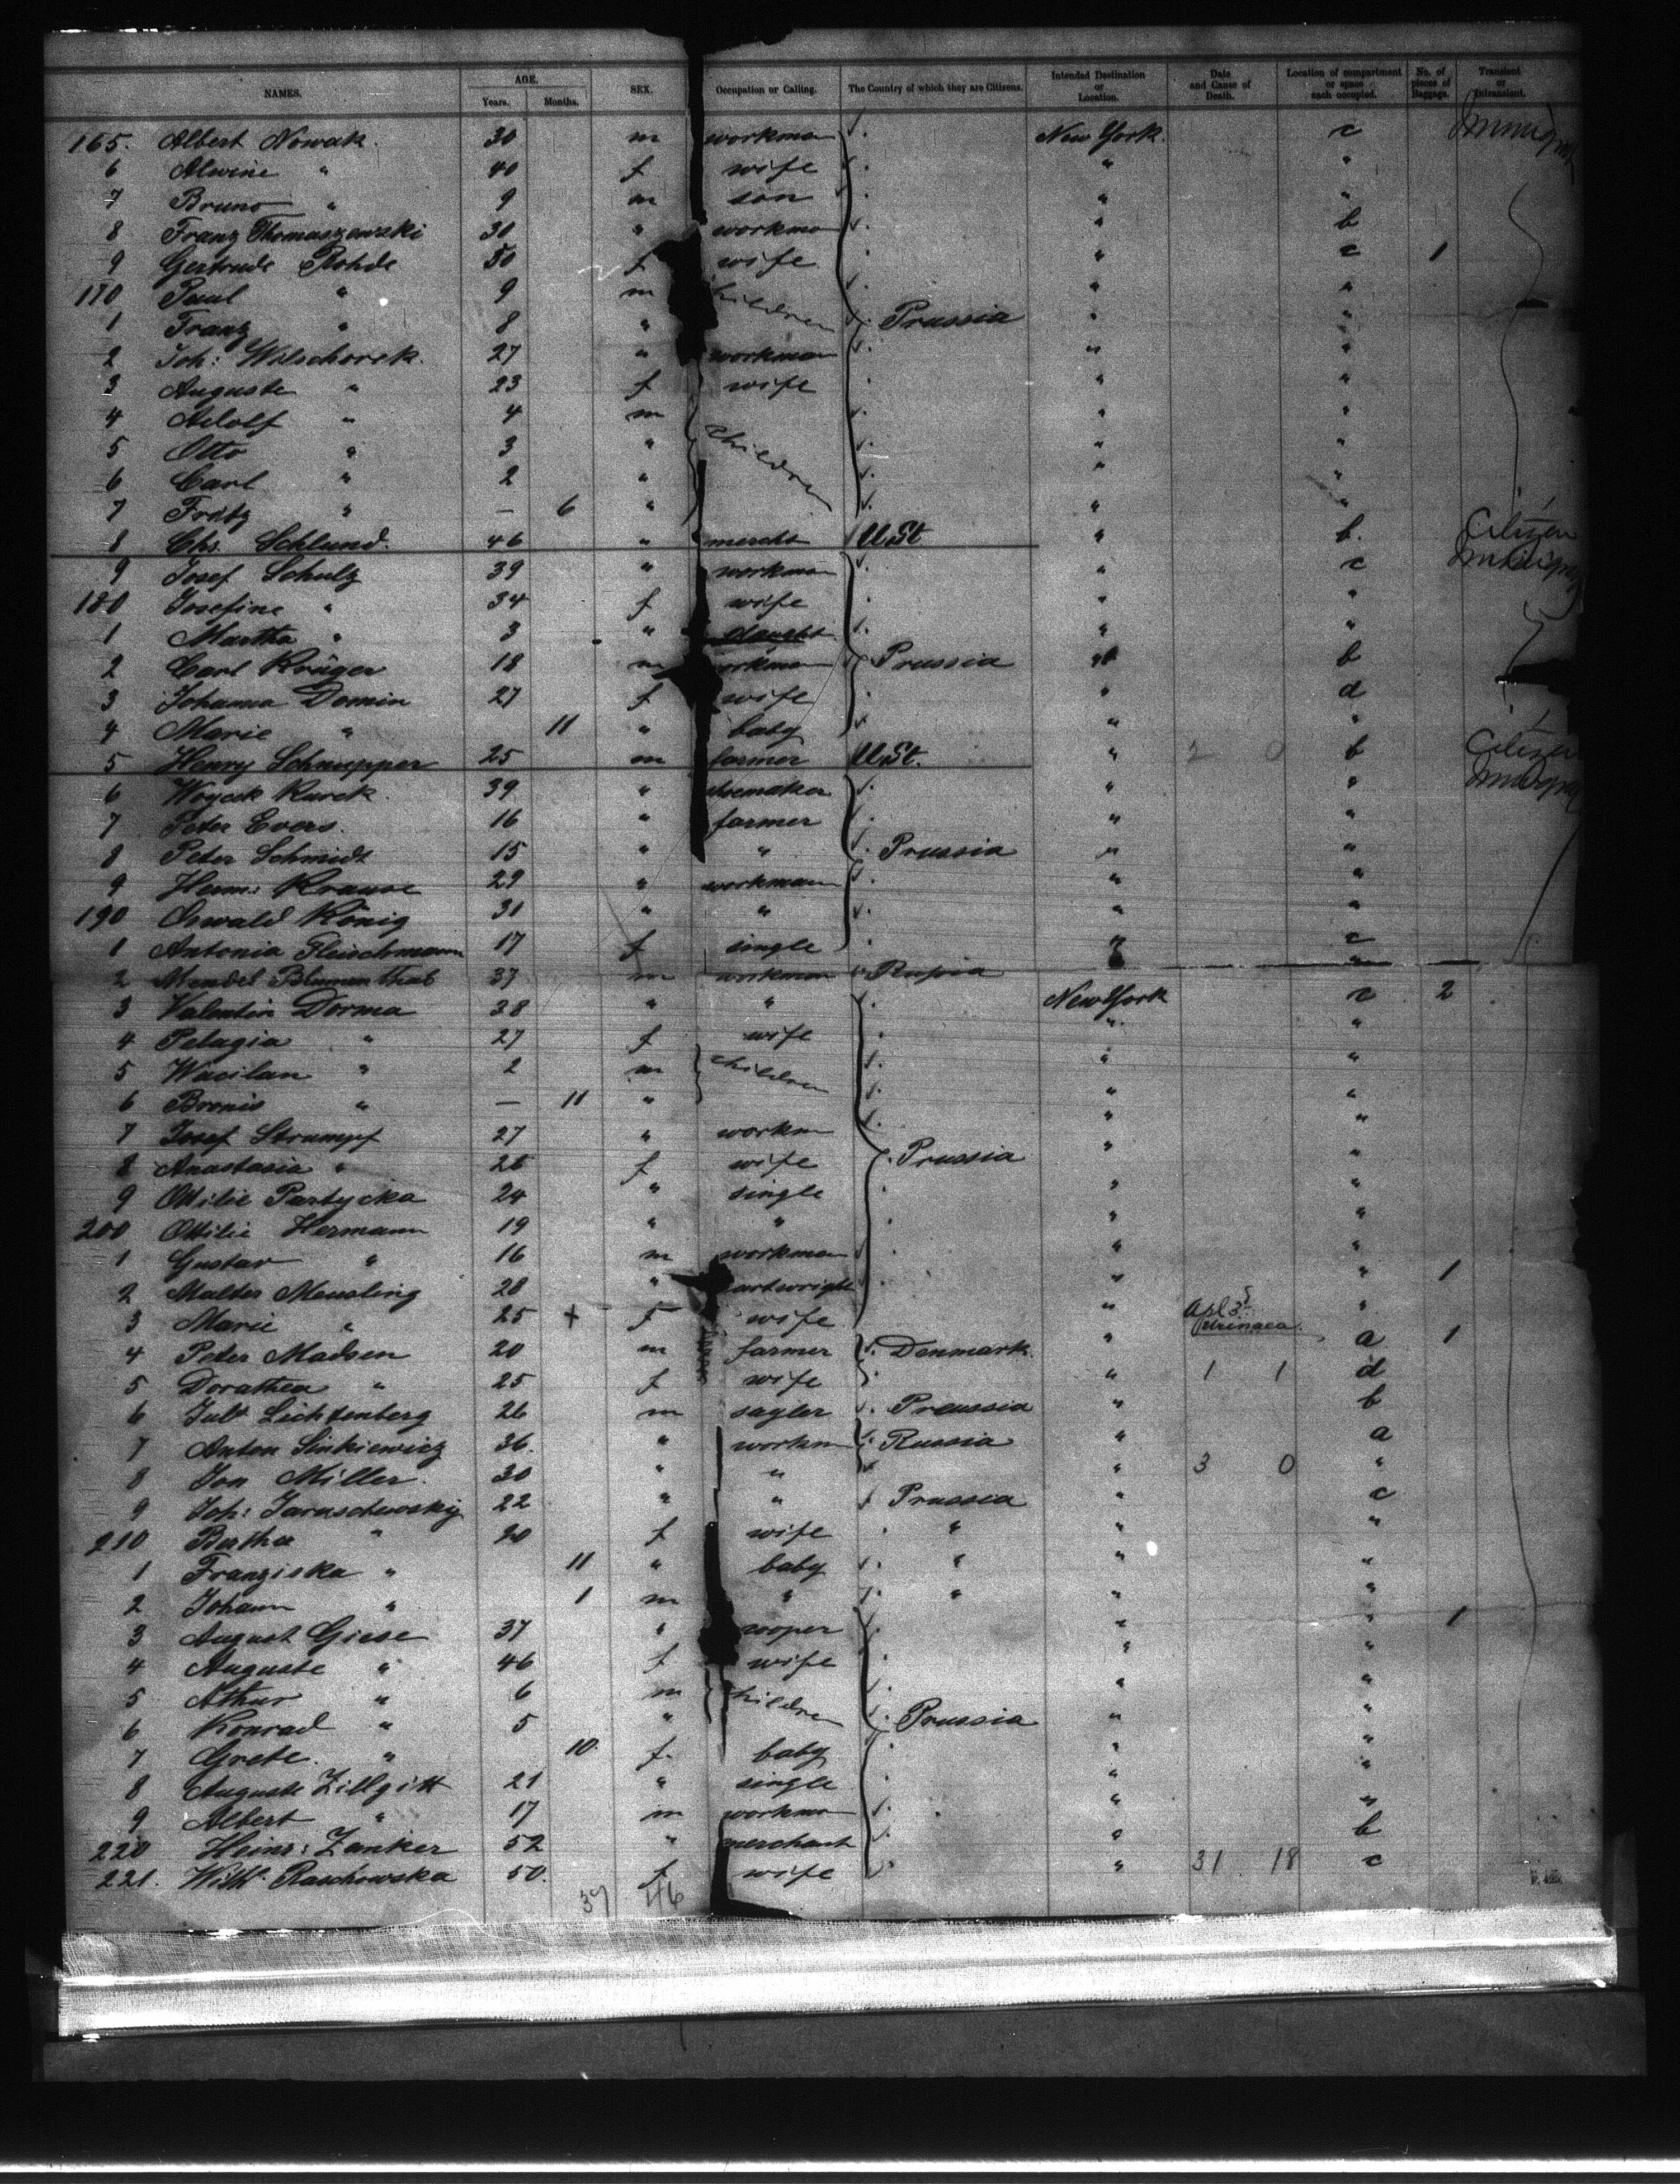 NAMES. AGE. Years. Months. SEX. Occupation or Calling. The Country of which they are Citizens. Intended Destination or Location. Date and Cause of Death. Location of compartment or space each occupied. No. of pieces of Baggage. Transient or Intransient.
165. Albert Nowak. 30 m workman New York. c
6 Alwine " 40 f wife " "
7 Bruno " 9 m son " "
8 Franz Thomaszewski 30 " workman " b
9 Gertrude Rohde 30 f wife " c 1
170 Paul " 9 m children " "
1 Franz " 8 " Prussia " "
2 Joh: Wilschorek. 27 " workman " "
3 Auguste " 23 f wife " "
4 Adolf " 4 m children " "
5 Otto " 3 " " "
6 Carl " 2 " " "
7 Fritz " — 6 " " "
8 Chs. Schlund. 46 " mercht U. St " b. Citizen
9 Josef Schulz 39 " workman " c
180 Josefine " 34 f wife " "
1 Martha " 3 " daught " "
2 Carl Krüger 18 m workman Prussia " b
3 Johanna Domin 27 f wife " d
4 Marie " 11 " baby " "
5 Henry Schnupper 25 m farmer U. St. " 2 0 b Citizen
6 Woycek Kurek. 39 " shoemaker " "
7 Peter Evers. 16 " farmer " "
8 Peter Schmidt 15 " " Prussia " "
9 Herm: Krause 29 " workman " "
190 Oswald König 31 " " " "
1 Antonia Fleischmann 17 f single " c
2 Mendel Blumenthal 37 m workman Russia " "
3 Valentin Dorma 28 " " New York c 2
4 Pelagia " 27 f wife " "
5 Wacilan " 2 m children " "
6 Bronis " — 11 " " "
7 Josef Strumpf 27 " workm " "
8 Anastasia " 26 f wife Prussia " "
9 Ottilie Partycka 24 " single " "
200 Ottilie Hermann 19 " " " "
1 Gustav " 16 m workman " "
2 Malter Meusling 28 " cartwright " " 1
3 Marie " 25 + f wife " Apl 3 "
4 Peter Madsen 20 m farmer Denmark. " a 1
5 Dorathea " 25 f wife " 1 1 d
6 Juls Lichtenberg 26 m sayler Preussia " b
7 Anton Sinkiewicz 36. " workm Russia " a
8 Jon Miller. 30 " " " 3 0 "
9 Joh: Jaruschewsky 22 " " Prussia " c
210 Bertha " 20 f wife " " "
1 Franziska " 11 " baby " " "
2 Johann " 1 m " " " "
3 August Giese 37 " cooper " " 1
4 Auguste " 46 f wife " "
5 Athur " 6 m children " "
6 Konrad " 5 " Prussia " "
7 Grete. " 10. f. baby " "
8 Auguste Zillgitt 21 " single " "
9 Albert " 17 m workman " "
220 Heinr: Zanker 52 " merchant " b
221. Wilh. Raschowska 50. f wife " 31 18 c
39 46